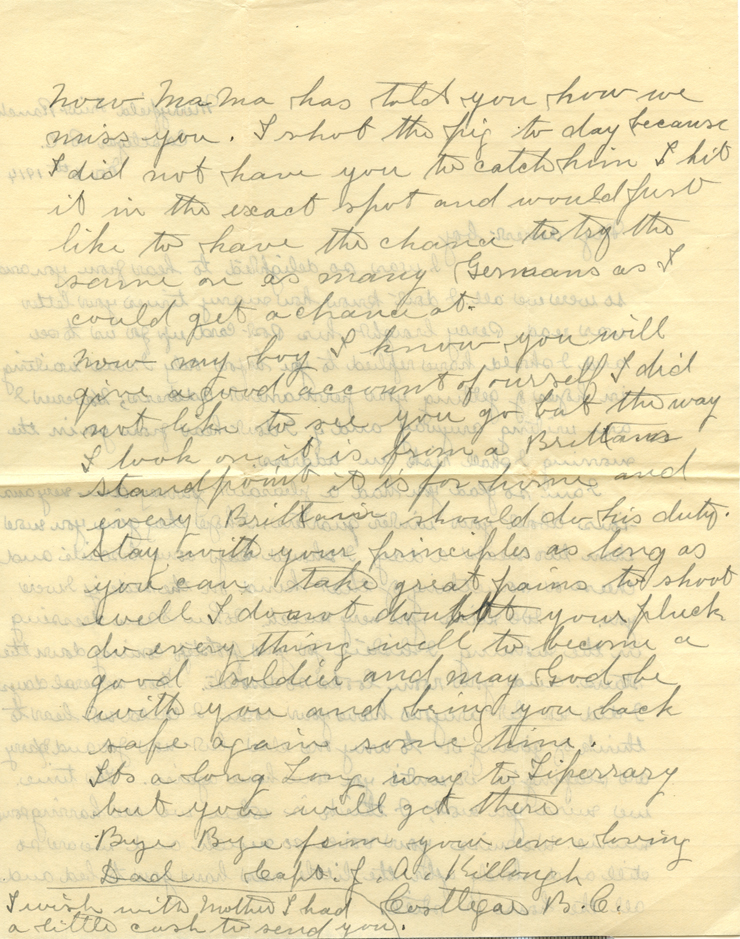 Now Ma Ma has told you how we
miss you. I shot the pig to day because
I did not have you to catch him I hit
it in the exact spot and would just
like to have the chance to try the
same on as many Germans as I
could get a chance at.
Now my boy I know you will
give a good account of ourself I did
not like to see you go but the way
I look on it is from a Brittans
standpoint it is for home and
every Brittan should do his duty.
Stay with your principles as long as
you can take great pains to shoot
well I do not doubt your pluck
do every thing well to become a
good soldier and may God be
with you and bring you back
safe again some time.
Its a long Long way to Tiperrary
but you will get there
Bye Bye from your ever loving
Dad Capt. J. A. Killough
I wish with Mother I had Costlegar B.C.
a little cash to send you.